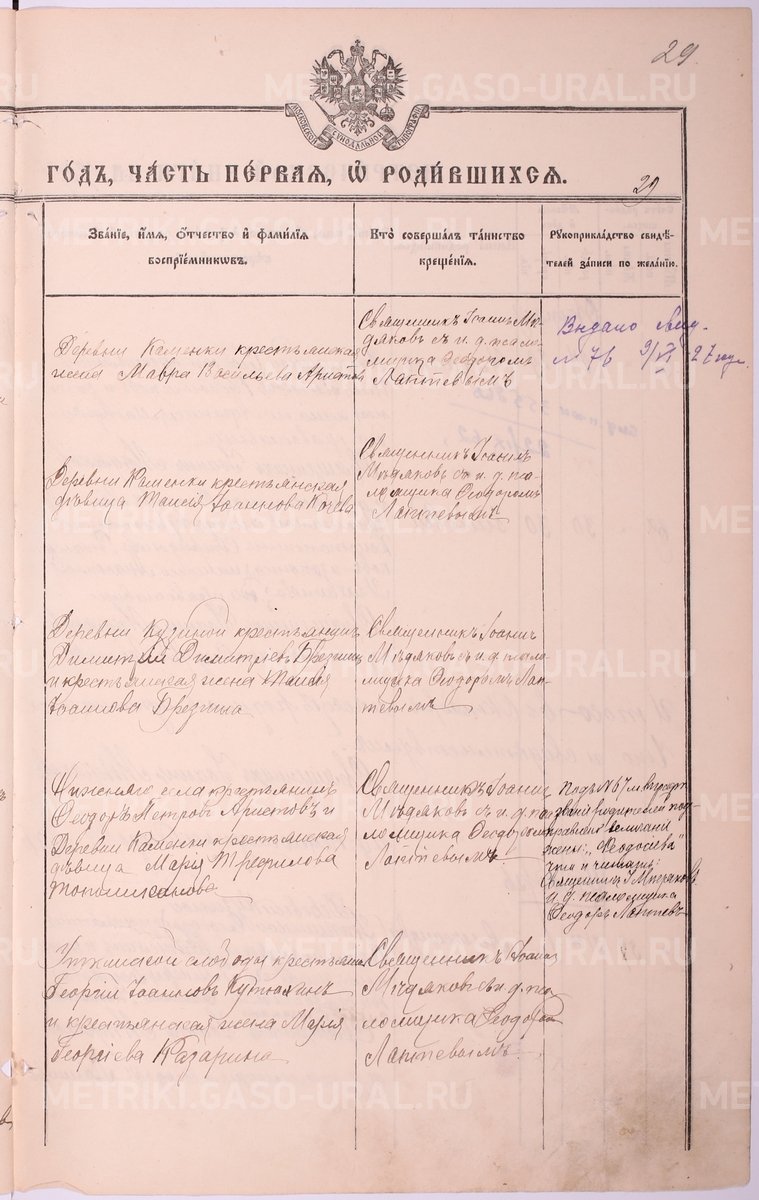 29
МОСКОВСКОЙ СѴНОДАЛЬНОЙ ТИПОГРАФІИ
ГОДЪ, ЧАСТЬ ПЕРВАЯ, Ѿ РОДИВШИХСЯ.
29
Званіе, имя, отчество и фамилія
воспріемниковъ.
Кто совершалъ таинство
крещенія.
Рукоприкладство свидѣ-
телей записи по желанію.
Деревни Каменки крестьянская
жена Мавра Васильева Аристова
Священникъ Іоаннъ Мѣ-
дяковъ съ и. д. псалом-
щика Ѳеодоромъ
Лаптевымъ
Выдано
№ 76 9/VI 27 года
Деревни Каменки крестьянская
дѣвица Таисія Іоаннова Кочева
Священникъ Іоаннъ
Мѣдяковъ съ и. д. пса-
ломщика Ѳеодоромъ
Лаптевымъ
Деревни Кузиной крестьянинъ
Димитрій Димитріевъ Брезгинъ
и крестьянская жена Таисія
Іоаннова Брезгина
Священникъ Іоаннъ
Мѣдяковъ съ и. д. псало-
мщика Ѳеодоромъ Лап-
тевымъ
Нижняго села крестьянинъ
Ѳеодоръ Петровъ Аристовъ и
Деревни Каменки крестьянская
дѣвица Марія Трефилова
Топольжанова
Священникъ Іоаннъ
Мѣдяковъ съ и. д. пса-
ломщика Ѳеодоромъ
Лаптевымъ
Подъ № 7 м. въ графѣ
званій родителей под-
жены: "Ѳеодосіева"
что и читать:
Священникъ І. Мѣдяковъ
и. д. псаломщика
Ѳеодоръ Лаптевъ
Уткинской слободы крестьянинъ
Георгій Іоанновъ Кутюхинъ
и крестьянская жена Марія
Георгіева Казарина
Священникъ Іоаннъ
Мѣдяковъ съ и. д. пса-
ломщика Ѳеодоромъ
Лаптевымъ.
METRIKI.GASO-URAL.RU